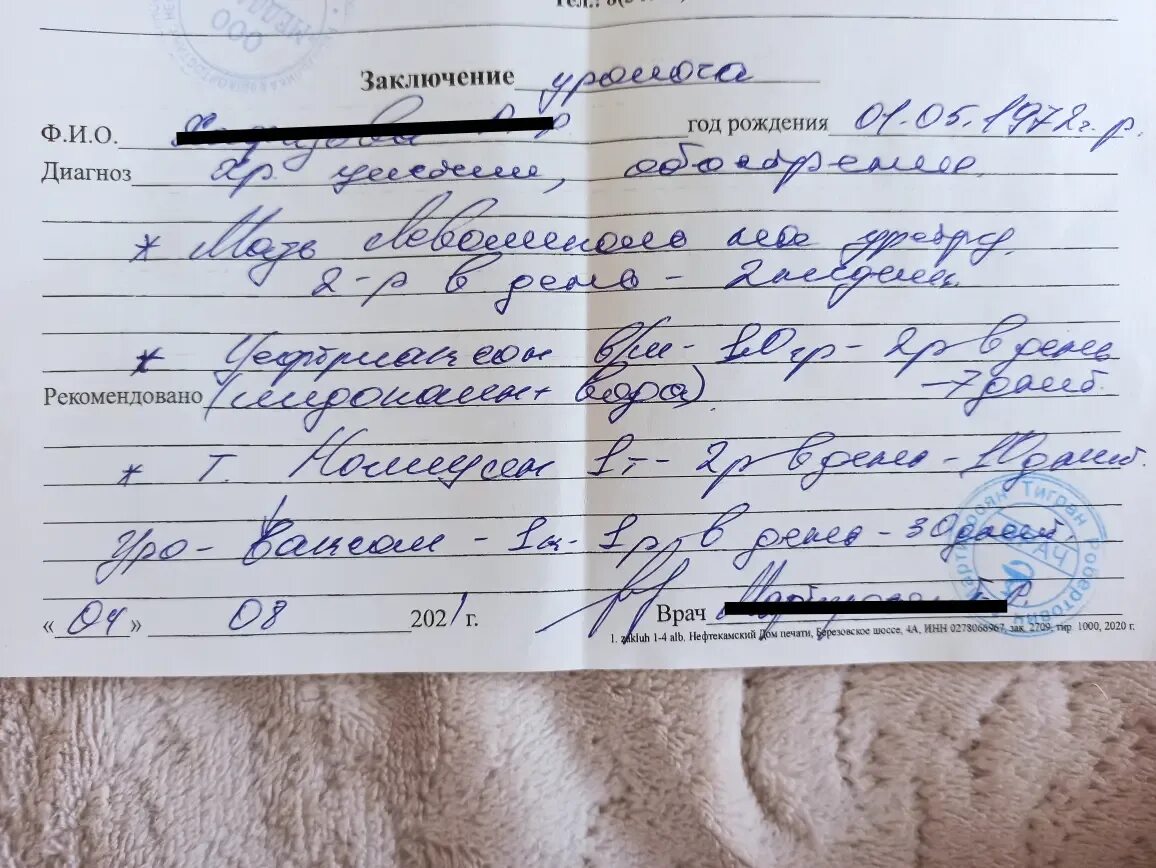 Заключение уролога
Ф.И.О. год рождения 01.05.1972г.р.
Диагноз Хр цистит, обострение.
* Мазь Левомеколь уретру
2-р в день - 2 недели
* Цефтриаксон в/м - 1,0 гр - 2р в день
Рекомендовано (лидокаин + вода). - 7 дней.
* Т. Нолицин 1т - 2р в день - 10 дней.
Уро-Ваксом - 1к - 1р в день - 30 дней.
«04» 08 2021г. Врач
1. zakluh 1-4 alb. Нефтекамский Дом печати, Березовское шоссе, 4А, ИНН 0278066967, зак. 2709, тир. 1000, 2020 г.
Тигран Робертович
ВРАЧ
ООО